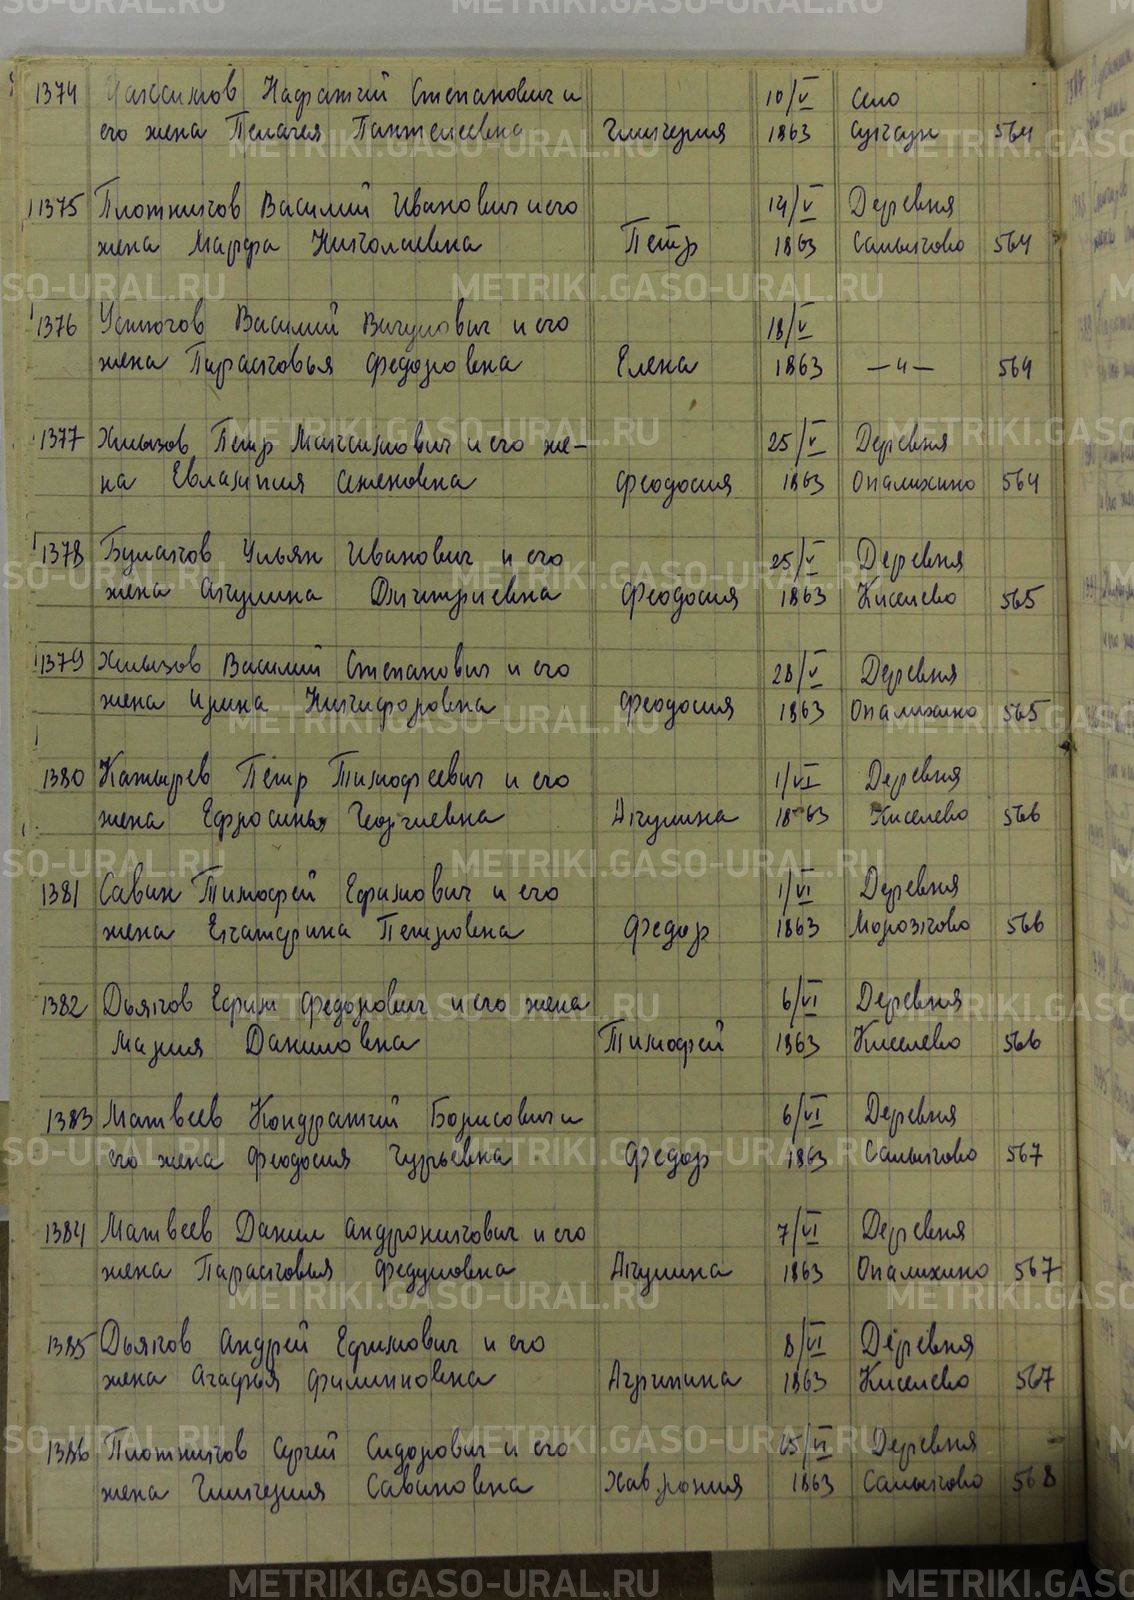 METRIKI.GASO-URAL.RU
1374 Максимов Кафратий Степанович и 10/V Село
его жена Пелагея Пантелеевна Гликерия 1863 564
1375 Плотников Василий Иванович и его 14/V Деревня
жена Марфа Николаевна Пётр 1863 Салынгово 564
1376 Устюгов Василий Викулович и его 18/V
жена Парасковья Федоровна Елена 1863 —"— 564
1377 Хмызов Пётр Максимович и его же-
на Евлампия Семеновна Феодосия 25/V 1863 Деревня Опалихино 564
1378 Булатов Ульян Иванович и его 25/V Деревня
жена Акулина Дмитриевна Феодосия 1863 Киселево 565
1379 Хмызов Василий Степанович и его 28/V Деревня
жена Ирина Никифоровна Феодосия 1863 Опалихино 565
1380 Катырев Пётр Тимофеевич и его 1/VI Деревня
жена Ефросинья Георгиевна Акулина 1863 Киселево 566
1381 Савин Тимофей Ефимович и его 1/VI Деревня
жена Екатерина Петровна Федор 1863 Морозково 566
1382 Дьяков Ефим Федорович и его жена 6/VI Деревня
Мария Даниловна Тимофей 1863 Киселево 566
1383 Матвеев Кондратий Борисович и 6/VI Деревня
его жена Феодосия Гурьевна Федор 1863 567
1384 Матвеев Данил Андроникович и его 7/VI Деревня
жена Парасковья Федуловна Акулина 1863 Опалихино 567
1385 Дьяков Андрей Ефимович и его 8/VI Деревня
жена Агафья Филипповна Агрипина 1863 Киселево 567
1386 Плотников Сергей Сидорович и его 15/VI Деревня
жена Гликерия Савановна Хаврония 1863 568